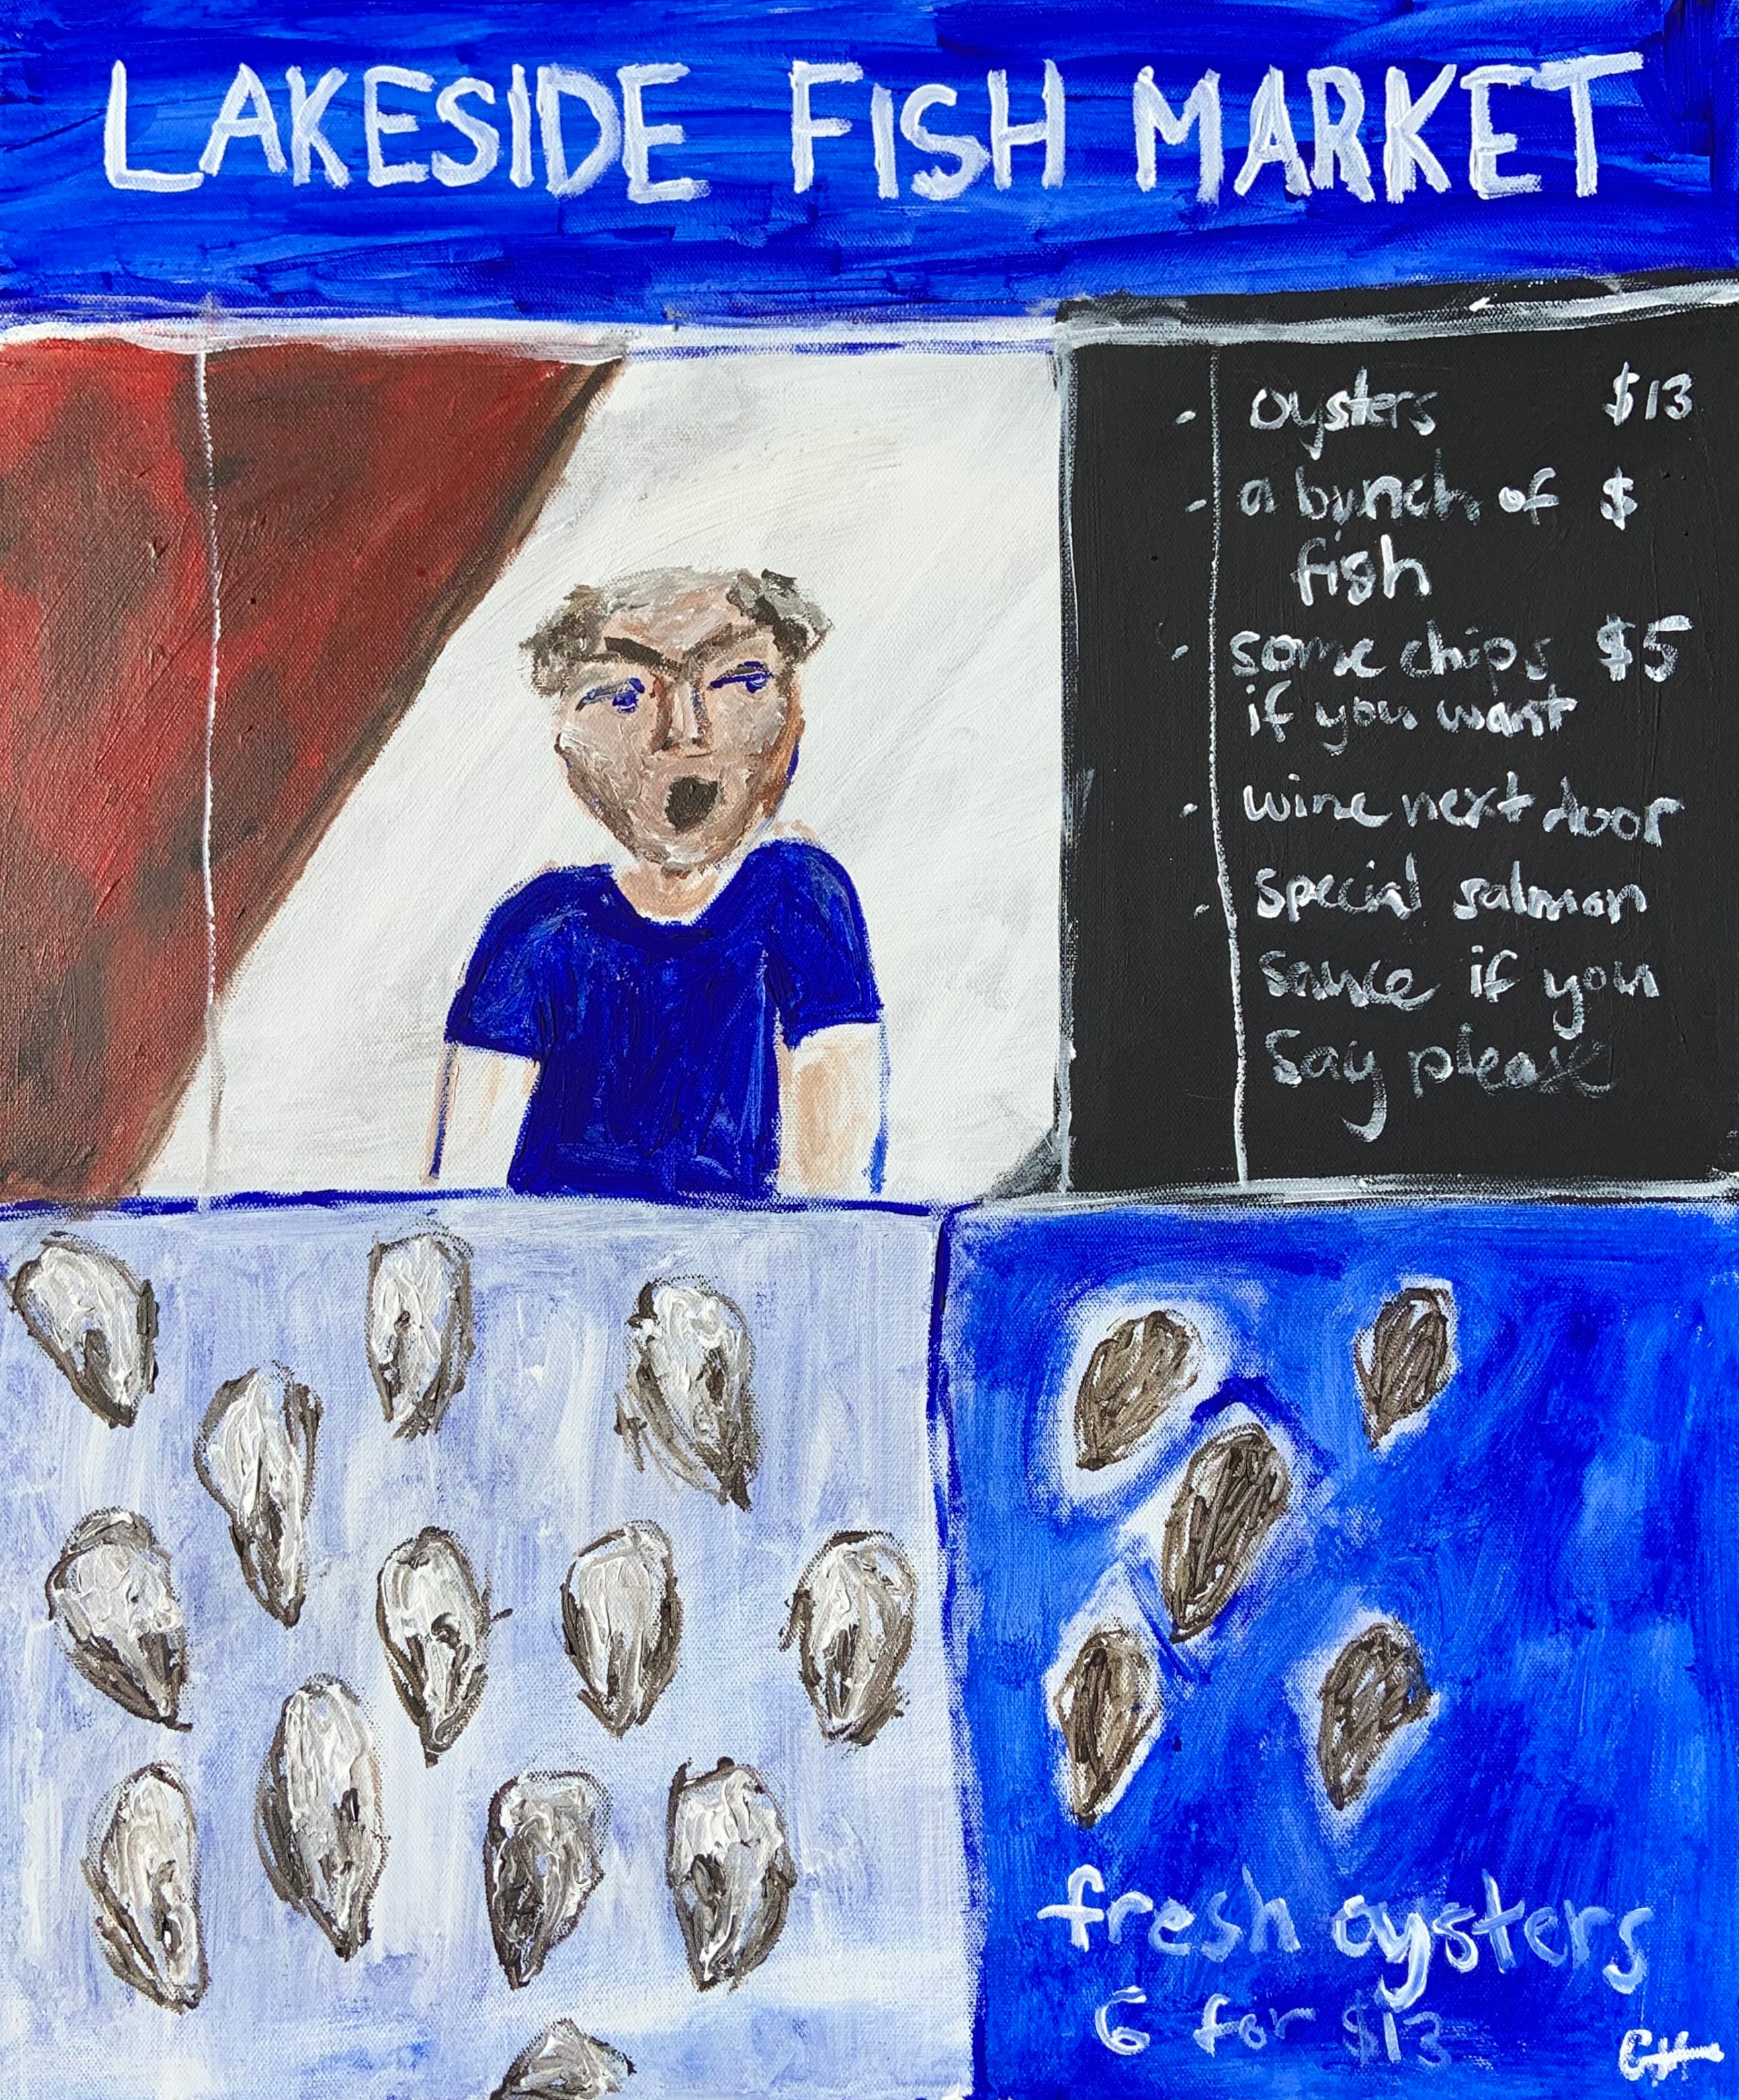 LAKESIDE FISH MARKET
- oysters $13
- a bunch of $
fish
- some chips $5
if you want
- wine next door
- special salmon
sauce if you
say please
fresh oysters
6 for $13
GH